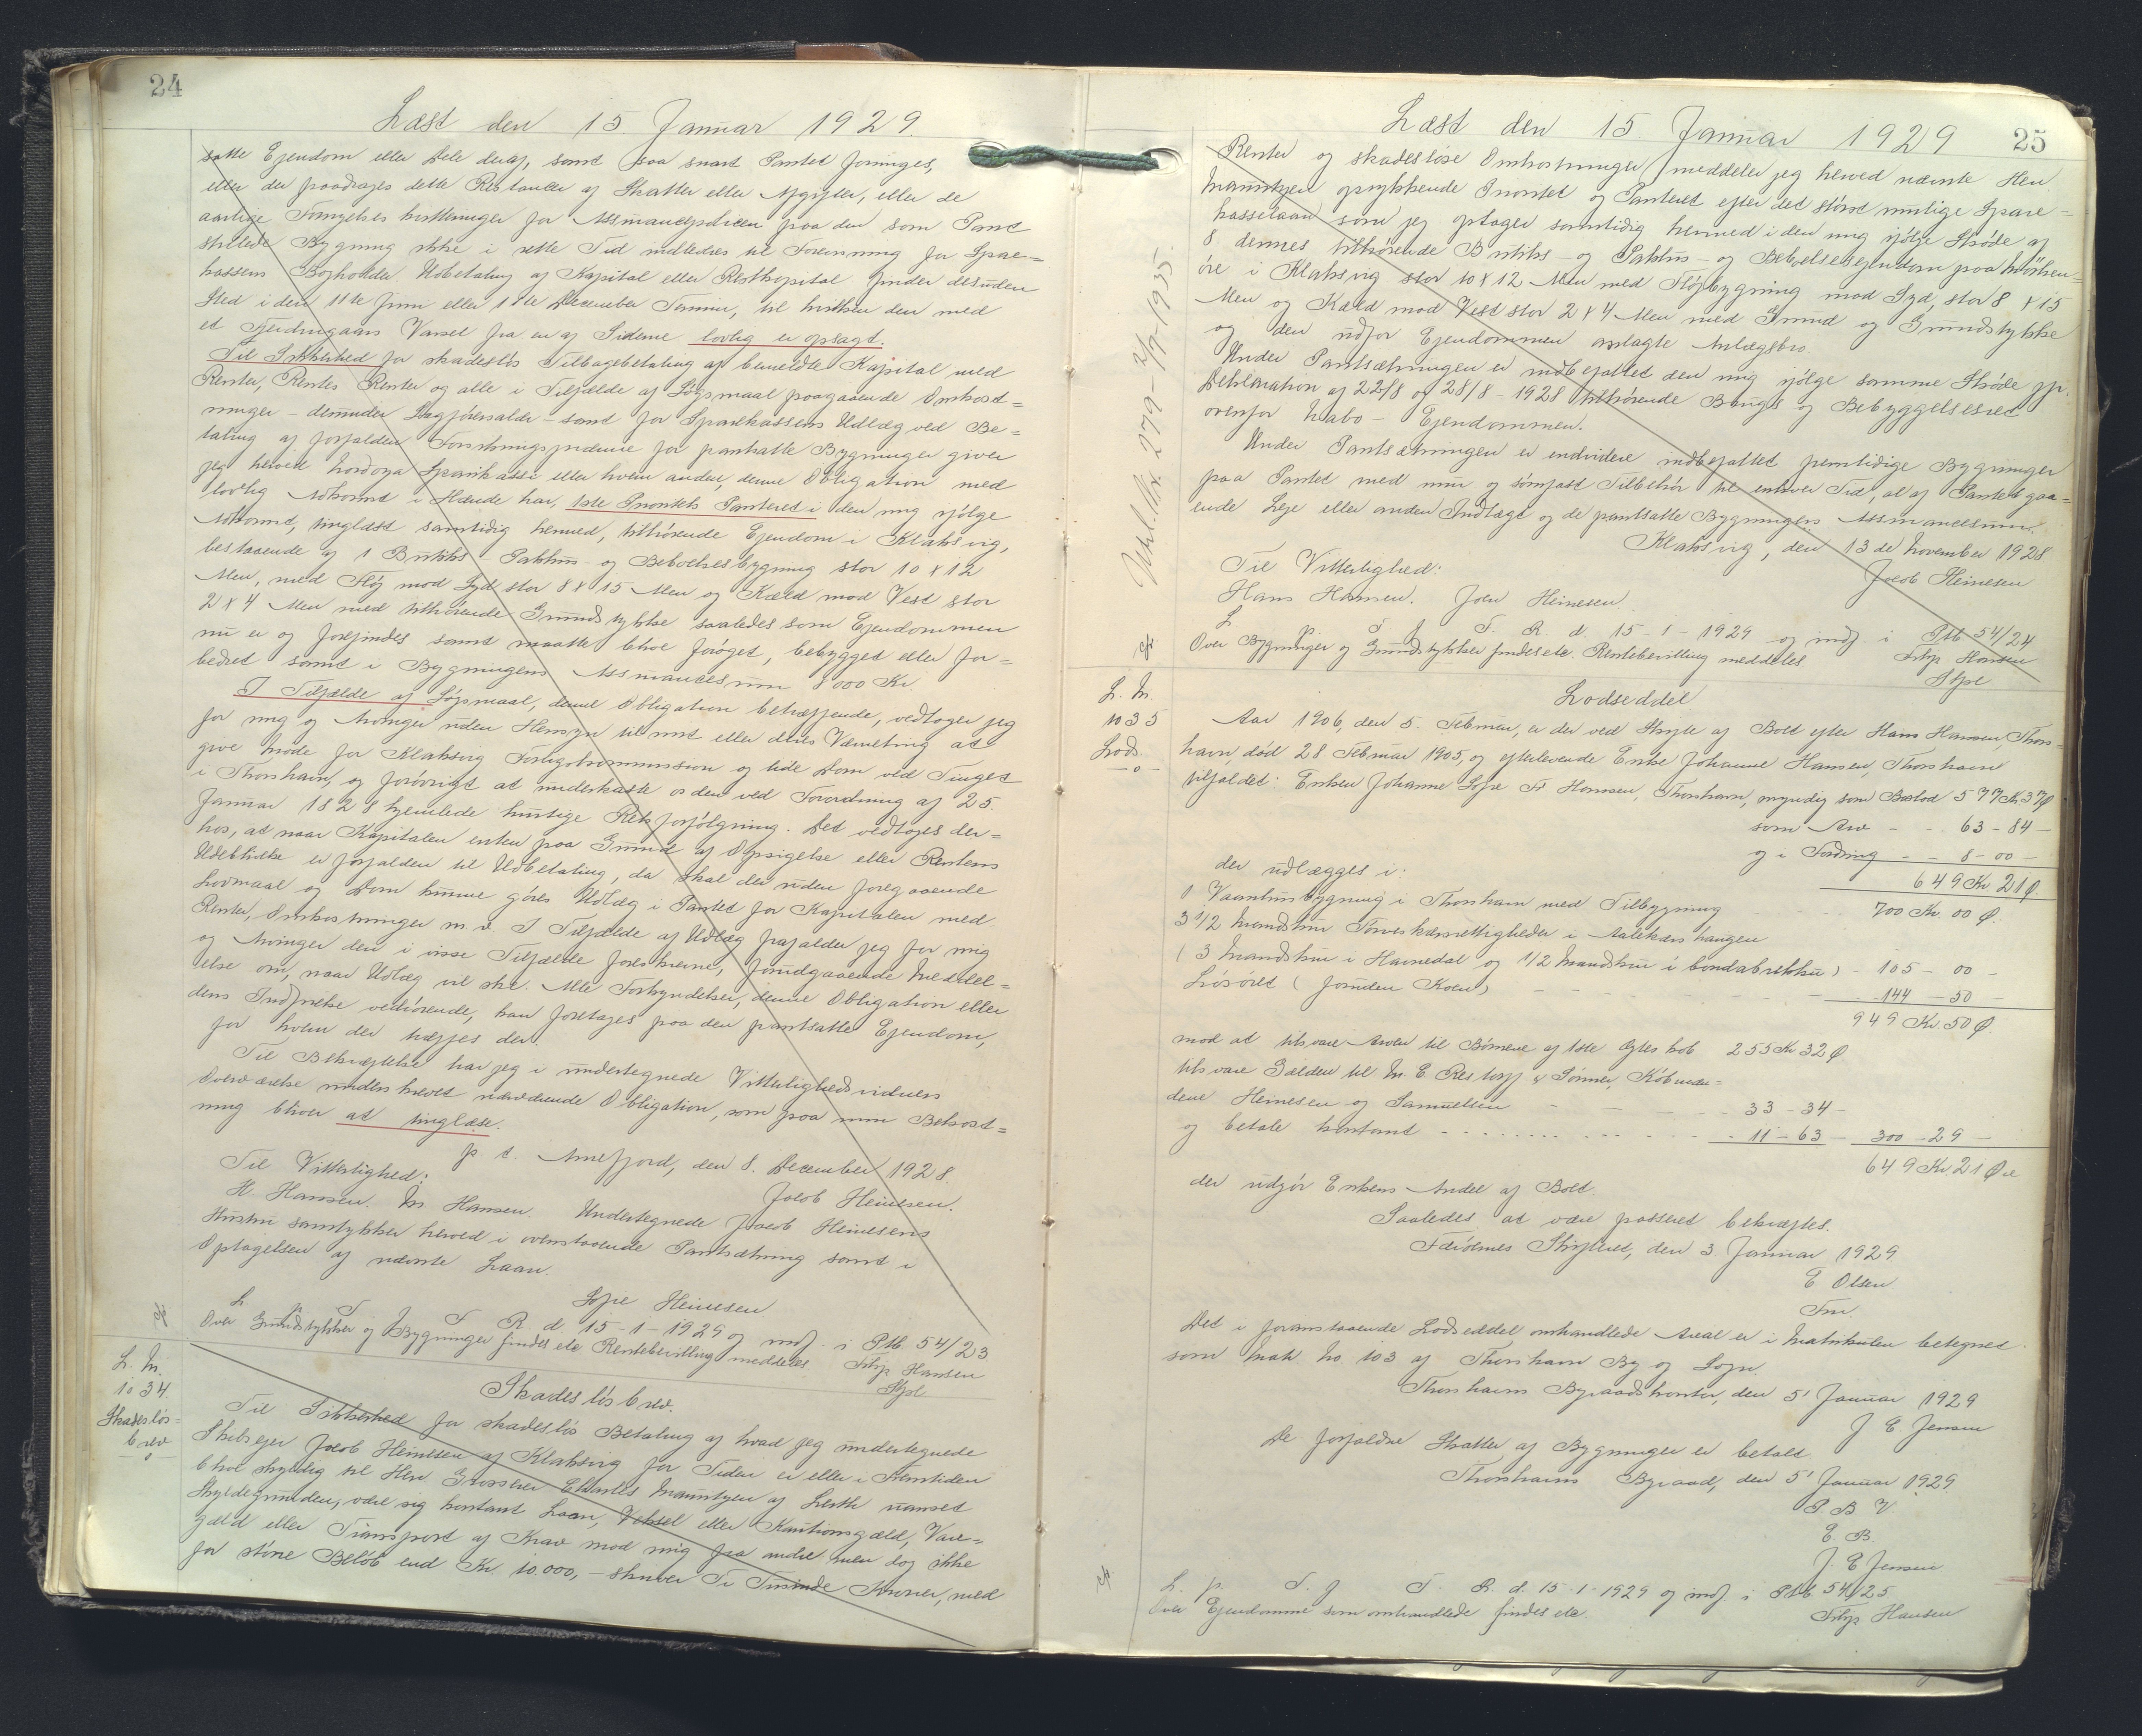 24
Læst den 15 Januar 1929.
satte Ejendom eller Dele deraf, samt saa snart Pantet foringes,
eller der paadrages dette Restancer af Skatter eller Afgifter, eller de
aarlige Fornyelses kvitteringer for Assurancepolicen paa den som Pant
stillede Bygning ikke i rette Tid indleveres til Forevisning for Spare=
kassens Bogholder. Udbetaling af Kapital eller Restkapital finder desuden
Sted i den 11te Juni eller 11te December Termin, til hvilken den med
et Fjerdingaars Varsel fra en af Siderne lovlig er opsagt.
Til Sikkerhed for skadesløs Tilbagebetaling af bemeldte Kapital med
Renter, Rentes Renter og alle i Tilfælde af Søgsmaal paagaaende Omkost=
ninger - derunder Sagførersalær - samt for Sparekassens Udlæg ved Be=
taling af forfalden Forsikringspræmie for pantsatte Bygninger giver
jeg herved Nordoya Sparikassi eller hvem anden, denne Obligation med
lovlig Adkomst i Hænde har, 1ste Prioritets Panteret i den mig ifølge
Adkomst, tinglæst samtidig hermed, tilhørende Ejendom i Klaksvig,
bestaaende af 1 Butiks Pakhus- og Beboelsesbygning stor 10 x 12
Alen, med Fløj mod Syd stor 8 x 15 Alen og Kæld mod Vest stor
2 x 4 Alen med tilhørende Grundstykke saaledes som Ejendommen
nu er og forefindes samt maatte blive forøget, bebygget eller for=
bedret samt i Bygningens Assurancesum 8000 Kr.
I Tilfælde af Søgsmaal, denne Obligation betræffende, vedtager jeg
for mig og Arvinger uden Hensyn til mit eller deres Værneting at
give Møde for Klaksvig Forligskommission og lide Dom ved Tinget
i Thorshavn, og forøvrigt at underkaste os den ved Forordning af 25
Januar 1828 hjemlede hurtige Retsforfølgning. Det vedtages der=
hos, at naar Kapitalen enten paa Grund af Opsigelse eller Rentens
Udeblivelse er forfalden til Udbetaling, da skal der uden foregaaende
Lovmaal og Dom kunne gøres Udlæg i Pantet for Kapitalen med
Renter, Omkostninger m.v. I Tilfælde af Udlæg frafalder jeg for mig
og Arvinger den i visse Tilfælde foreskrevne, forudgaaende Meddel=
else om, naar Udlæg vil ske. Alle Forkyndelser, denne Obligation eller
dens Indfrielse vedrørende, kan foretages paa den pantsatte Ejendom,
for hvem der træffes der.
Til Bekræftelse har jeg i undertegnede Vitterlighedsvidners
Overværelse underskrevet nærværende Obligation, som paa min Bekost=
ning bliver at tinglæse.
p t. Arnefjord, den 8. December 1928.
Til Vitterlighed:
Jacob Heinesen.
H Hansen. M Hansen. Undertegnede Jacob Heinesens
Hustru samtykker herved i ovenstaaende Pantsætning samt i
Optagelsen af nævnte Laan.
Sofie Heinesen
L p T f F R d. 15-1-1929 og indf. i Ptb. 54/23
Over Grundstykker og Bygninger findes ete. Rentebevilling meddeles. Filip Hansen
Sfse
L. N.
1034.
Skadesløs=
brev
-o-
Skadesløsbrev.
Til Sikkerhed for skadesløs Betaling af hvad jeg undertegnede
Skibsejer Jacob Heinesen af Klaksvig for Tiden er eller i Fremtiden
blive skyldig til Herr Grosserer Charles Mauritzen af Leith uanset
Skyldegrunden, være sig kontant Laan, Veksel eller Kautionsgæld, Vare=
gæld eller Transport af Krav mod mig fra andre men dog ikke
for større Beløb end Kr. 10.000,- skriver Ti Tusinde Kroner, med
Læst den 15. Januar 1929
25
Renter og skadesløse Omkostninger meddeler jeg herved nævnte Herr
Mauritzen oprykkende Prioritet og Panteret efter det størst mulige Spare=
kasselaan som jeg optager samtidig hermed i den mig ifølge Skøde af
8. dennes tilhørende Butiks- og Pakhus- og Beboelsesejendom paa Mørken=
øre i Klaksvig stor 10 x 12 Alen med Fløjbygning mod Syd, stor 8 x 15
Alen og Kæld mod Vest stor 2 x 4 Alen med Grund og Grundstykke
og den udfor Ejendommen anlagte Anlægsbro.
Under Pantsætningen er indbefattet den mig ifølge samme Skøde jfr.
Deklaration af 22/8 og 28/8-1928 tilhørende Brugs og Bebyggelsesret
ovenfor Nabo-Ejendommen.
Under Pantsætningen er endvidere indbefattet fremtidige Bygninger
paa Pantet med mur og sømfast Tilbehør til enhver Tid, al af Pantet gaa=
ende Leje eller anden Indtægt og de pantsatte Bygningers Assurancesum.
Klaksvig, den 13de November 1928.
Til Vitterlighed:
Jacob Heinesen
Hans Hansen. Joen Heinesen.
L p T f F. R. d. 15-1-1929 og indf. i Ptb 54/24
Over Bygninger og Grundstykker findes ete. Rentebevilling meddeles Filip Hansen
Sfse
L. N.
1035
Lods.
-o-
Lodseddel
Aar 1906, den 5. Februar, er der ved Skifte af Boet efter Hans Hansen, Thors=
havn, død 28 Februar 1905, og efterlevende Enke Johanne Hansen, Thorshavn
tilfaldet: Enken Johanne Sofie F. Hansen, Thorshavn, myndig som Boslod 577 Kr 37 Ø
som Arv - - 63-84-
og i Fordring - - 8-00-
649 Kr 21 Ø.
der udlægges i:
1 Vaanhusbygning i Thorshavn med Tilbygning 700 Kr. 00 Ø.
3 1/2 Mandskur Tørveskærsrettigheder i Aalekærs haugen
(3 Mandskur i Havnedal og 1/2 Mandskur i bondabrekku) - 105 - 00 -
Løsøret (foruden Koen) - 144 - 50 -
949 Kr. 50 Ø.
mod at tilsvare Arven til Børnene af 1ste Ægteskab 255 Kr 32 Ø
tilsvare Gælden til M. C. Restorff & Sønner, Købmæn=
dene Heinesen og Samuelsen - 33-34-
og betale kontant - 11-63- 300-29-
649 Kr 21 Øre
der udgør Enkens Andel af Boet.
Saaledes at være passeret bekræftes.
Færøernes Skifteret, den 3. Januar 1929.
E Olsen
Fm.
Det i foranstaaende Lodseddel omhandlede Areal er i Matrikulen betegnet
som Matr. No. 103 af Thorshavn By og Sogn.
Thorshavns Byraadskontor, den 5' Januar 1929
J E Jensen
De forfaldne Skatter af Bygningen er betalt.
Thorshavns Byraad, den 5' Januar 1929.
P. B. V.
E B
J E Jensen
L. p. T. f F. R. d. 15-1-1929 og indf. i Ptb. 54/25
Over Ejendomme som omhandlede findes ete. Filip Hansen